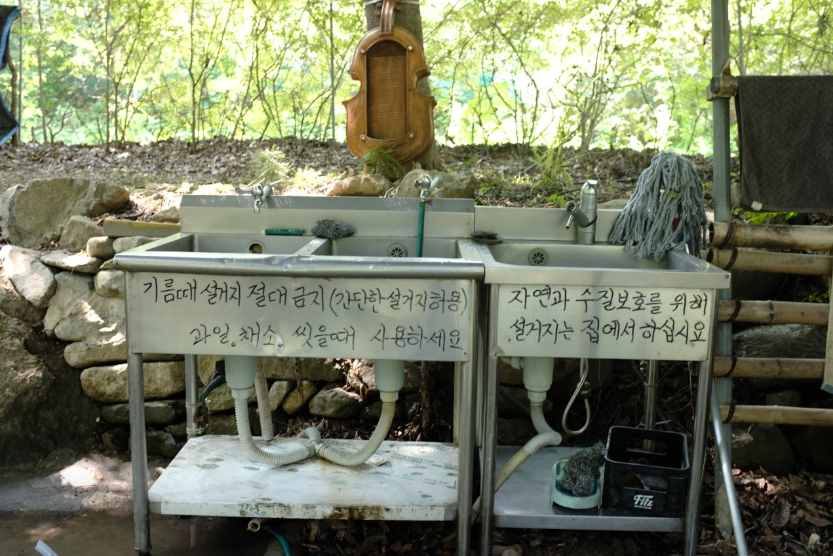 기름때 설거지 절대 금지 (간단한 설거지 허용)
과일, 채소 씻을때 사용하세요
자연과 수질보호를 위해
설거지는 집에서 하십시오
Fitz